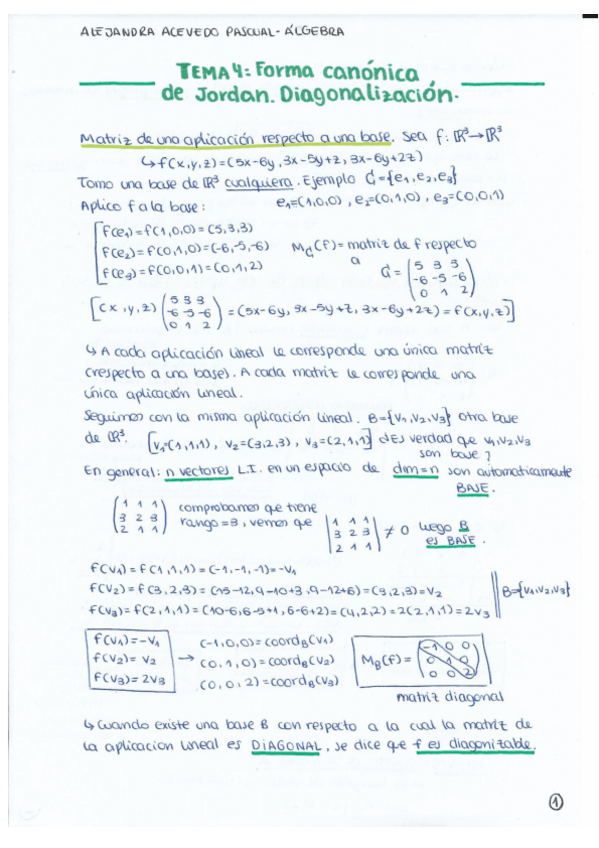 ALEJANDRA ACEVEDO PASCUAL - ÁLGEBRA
TEMA 4: Forma canónica
de Jordan. Diagonalización.
Matriz de una aplicación respecto a una base. Sea f: ℝ³→ℝ³
↳ f(x,y,z)=(5x-6y, 3x-5y+z, 3x-6y+2z)
Tomo una base de ℝ³ cualquiera. Ejemplo C={e₁,e₂,e₃}
Aplico f a la base: e₁=(1,0,0), e₂=(0,1,0), e₃=(0,0,1)
f(e₁)=f(1,0,0)=(5,3,3)
f(e₂)=f(0,1,0)=(-6,-5,-6) M_C(f)= matriz de f respecto
f(e₃)=f(0,0,1)=(0,1,2) a C = (5 3 3
-6 -5 -6
0 1 2)
[(x,y,z) (5 3 3
-6 -5 -6
0 1 2) = (5x-6y, 3x-5y+z, 3x-6y+2z) = f(x,y,z)]
↳ A cada aplicación lineal le corresponde una única matriz
(respecto a una base). A cada matriz le corresponde una
única aplicación lineal.
Seguimos con la misma aplicación lineal. B={v₁,v₂,v₃} otra base
de ℝ³. [v₁=(1,1,1), v₂=(3,2,3), v₃=(2,1,1)] ¿Es verdad que v₁,v₂,v₃
son base?
En general: n vectores L.I. en un espacio de dim=n son automaticamente
BASE.
(1 1 1
3 2 3
2 1 1) comprobamos que tiene
rango=3, vemos que |1 1 1
3 2 3
2 1 1| ≠ 0 luego B
es BASE.
f(v₁)=f(1,1,1)=(-1,-1,-1)=-v₁
f(v₂)=f(3,2,3)=(15-12,9-10+3,9-12+6)=(3,2,3)=v₂
f(v₃)=f(2,1,1)=(10-6,6-5+1,6-6+2)=(4,2,2)=2(2,1,1)=2v₃ B={v₁,v₂,v₃}
f(v₁)=-v₁ (-1,0,0)=coord_B(v₁)
f(v₂)=v₂ → (0,1,0)=coord_B(v₂) M_B(f)= (-1 0 0
0 1 0
0 0 2)
f(v₃)=2v₃ (0,0,2)=coord_B(v₃)
matriz diagonal
↳ Cuando existe una base B con respecto a la cual la matriz de
la aplicacion lineal es DIAGONAL, se dice que f es diagonizable.
1